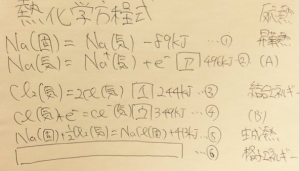 熱化学方程式
Na(固) = Na(気) - 89kJ …① 昇華熱
Na(気) = Na⁺(気) + e⁻ ア 496kJ …② (A)
Cl₂(気) = 2Cl(気) イ 244kJ …③ 結合エネルギー
Cl(気) + e⁻ = Cl⁻(気) ウ 349kJ …④ (B)
Na(固) + ½Cl₂(気) = NaCl(固) + 413kJ …⑤ 生成熱
…⑥ 格子エネルギー